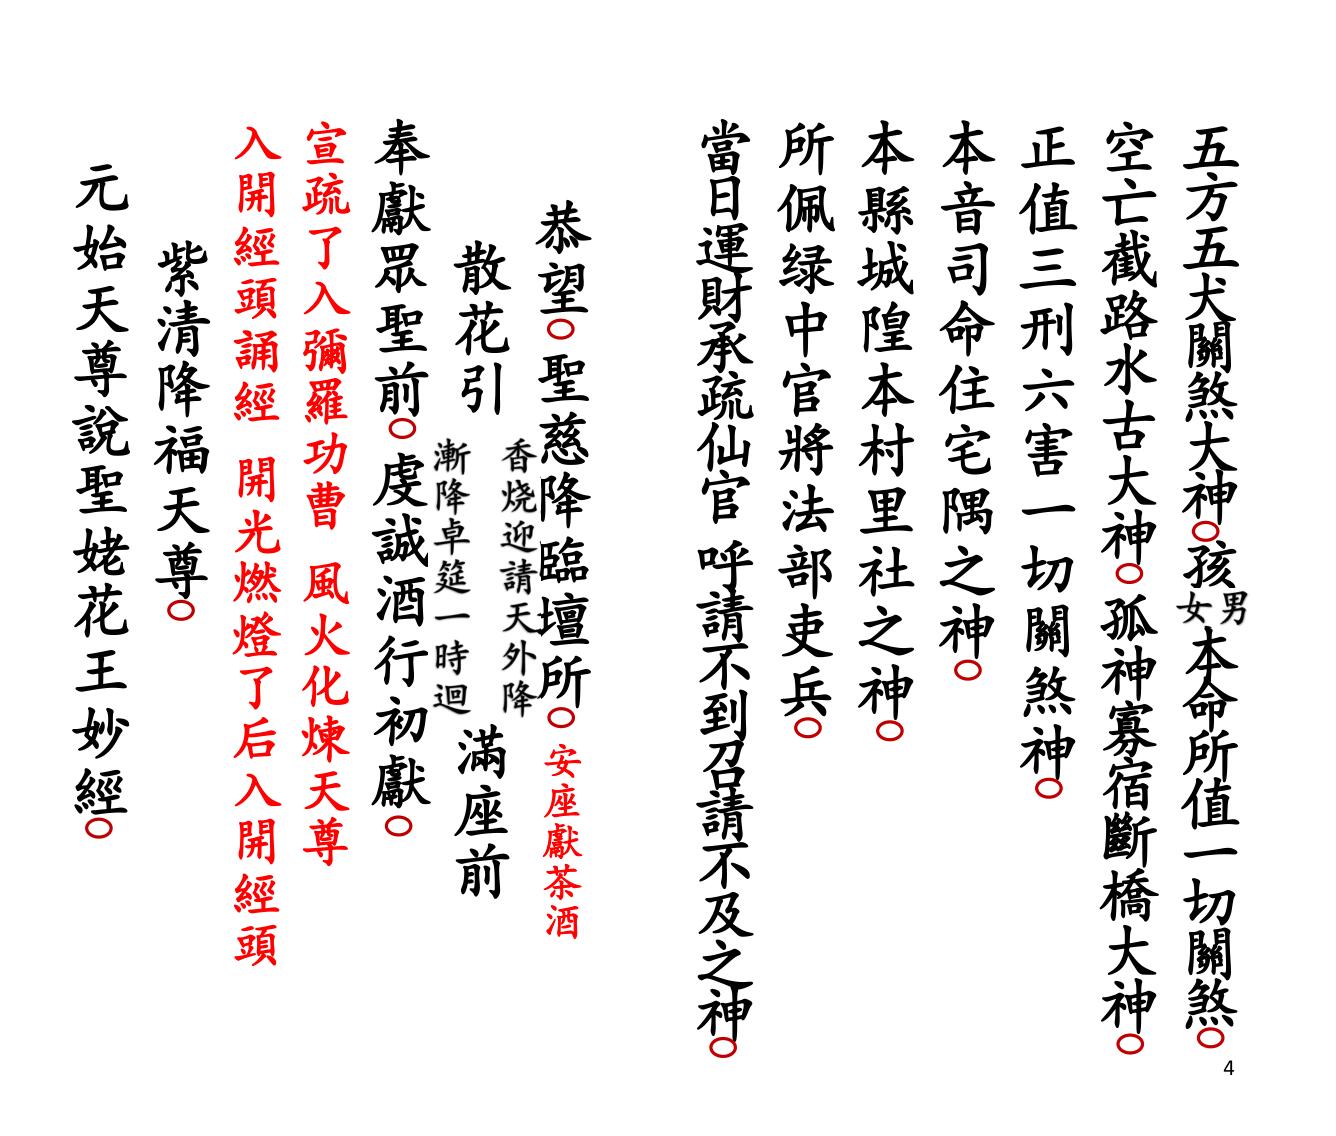 五方五犬關煞大神○孩男女本命所值一切關煞○
空亡截路水古大神○孤神寡宿斷橋大神○
正值三刑六害一切關煞神○
本音司命住宅隅之神○
本縣城隍本村里社之神○
所佩绿中官將法部吏兵○
當日運財承疏仙官 呼請不到召請不及之神○
恭望○聖慈降臨壇所○安座獻茶酒
散花引 香烧迎請天外降 漸降卓筵一時迴 滿座前
奉獻眾聖前○虔誠酒行初獻○
宣疏了入彌羅功曹 風火化煉天尊
入開經頭誦經 開光燃燈了后入開經頭
紫清降福天尊○
元始天尊說聖姥花王妙經○
4